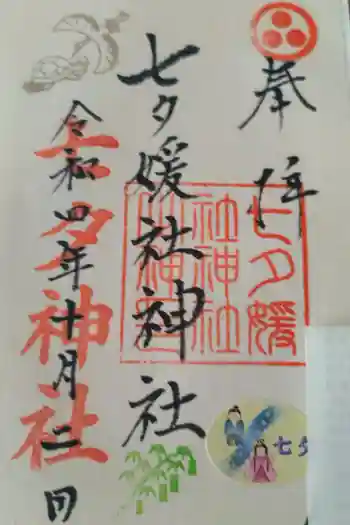 奉拝
七夕媛社神社
七夕媛
社神社
令和四年十月二日
七夕神社
七夕